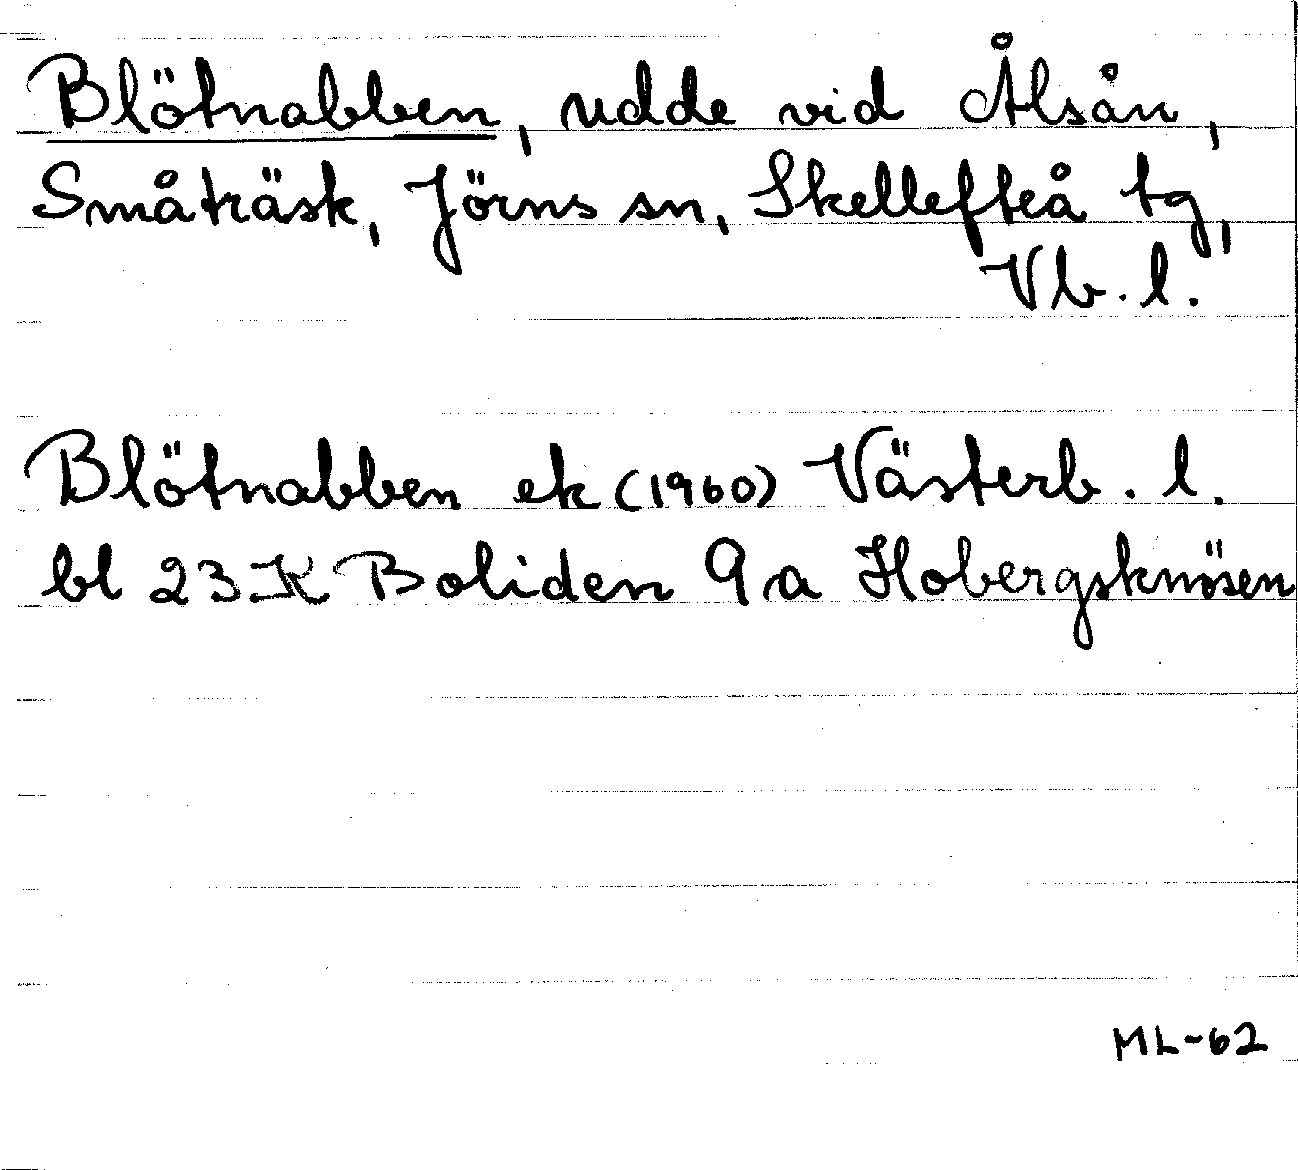 Blötnabben, udde vid Ålsån,
Småträsk, Jörns sn, Skellefteå tg,
Vb. l.
Blötnabben ek (1960) Västerb. l.
bl 23 K Boliden 9 a Hobergsknösen
ML-62